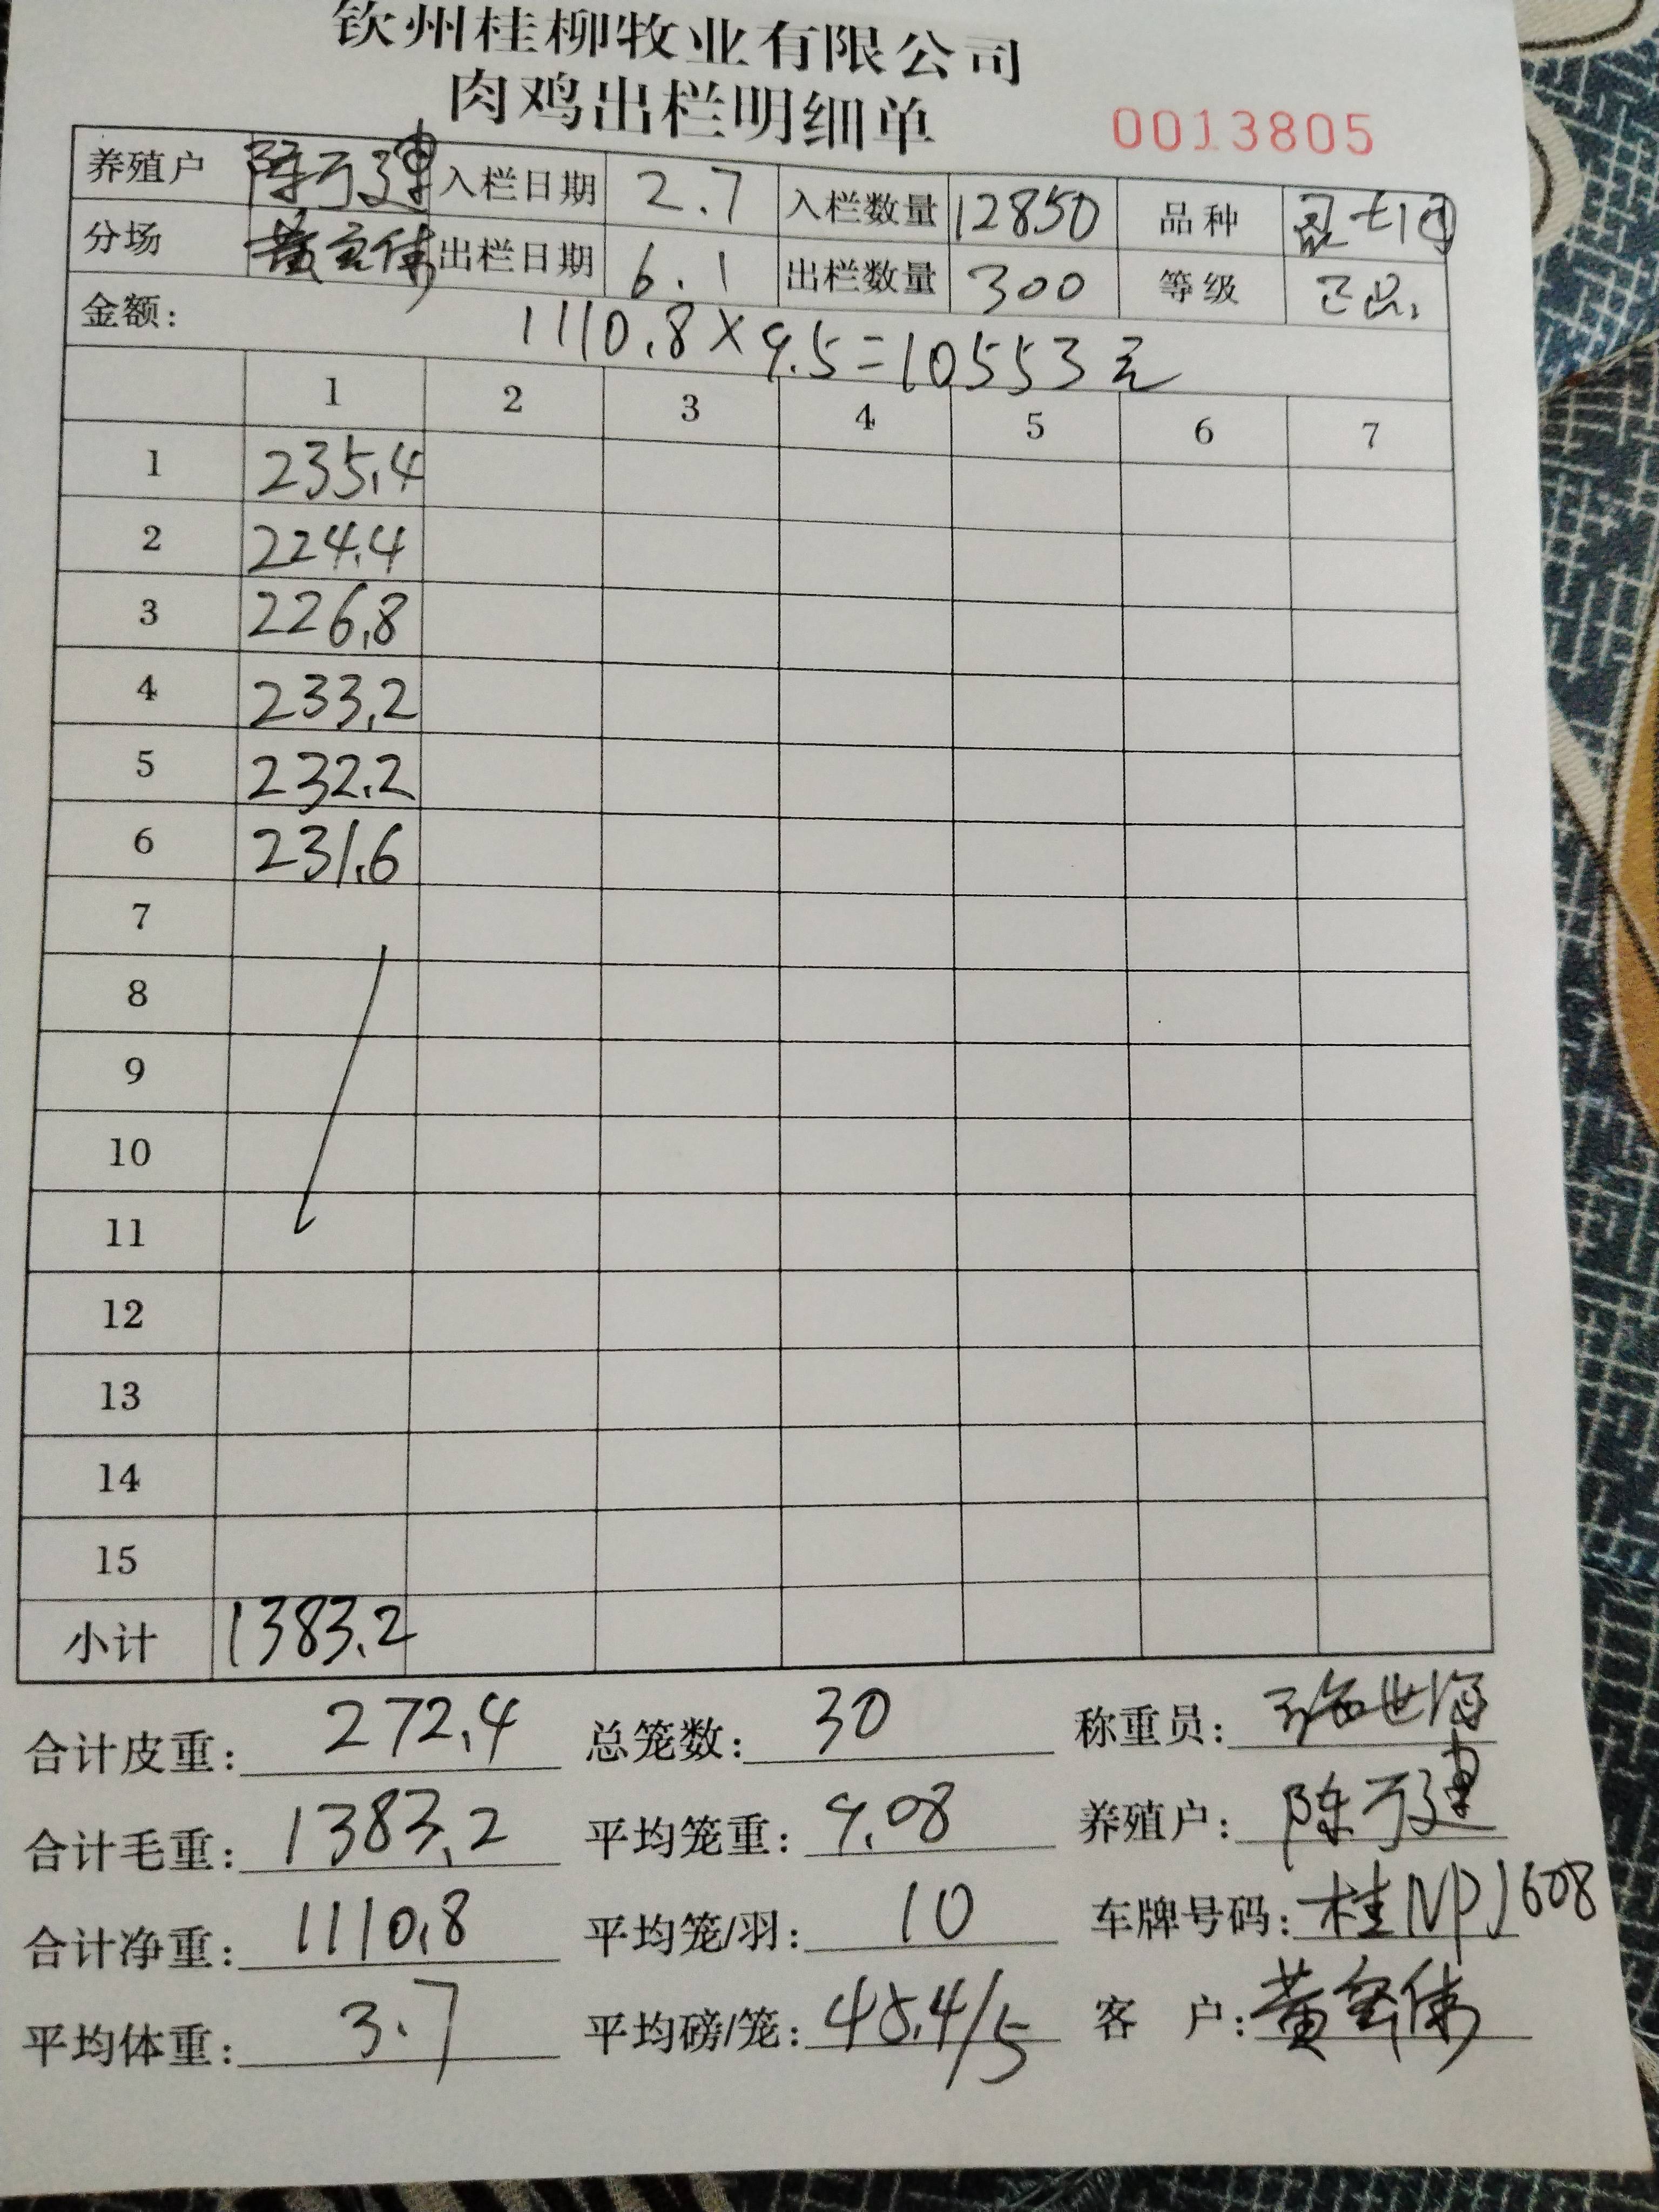 钦州桂柳牧业有限公司
肉鸡出栏明细单
0013805
养殖户 陈万建 入栏日期 2.7 入栏数量 12850 品种
分场 出栏日期 6.1 出栏数量 300 等级 正品
金额: 1110.8×9.5=10553元
1 2 3 4 5 6 7
1 235.4
2 224.4
3 226.8
4 233.2
5 232.2
6 231.6
7
8
9
10
11
12
13
14
15
小计 1383.2
合计皮重: 272.4 总笼数: 30 称重员: 世海
合计毛重: 1383.2 平均笼重: 9.08 养殖户: 陈万建
合计净重: 1110.8 平均笼/羽: 10 车牌号码: 桂NPJ608
平均体重: 3.7 平均磅/笼: 45.4/5 客户: 黄